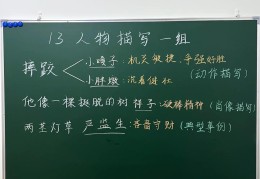 13 人物描写一组
小嘎子:机灵敏捷,争强好胜
摔跤
(动作描写)
小胖墩:沉着健壮
他像一棵挺脱的树 祥子:硬棒精神(肖像描写)
两茎灯草 严监生:吝啬守财(典型事例)